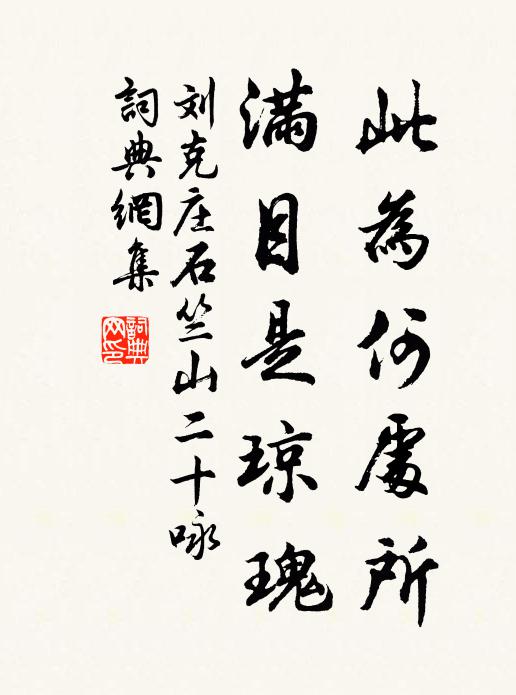 此為何處所
滿目是琼瑰
刘克庄石竺山二十咏
詞典網集
詞典网印